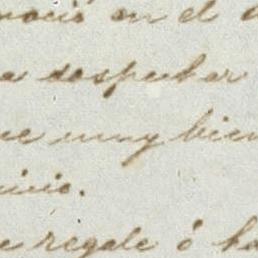 noció en el
a sospechar
ue muy bien
icio.
e regale ó ha